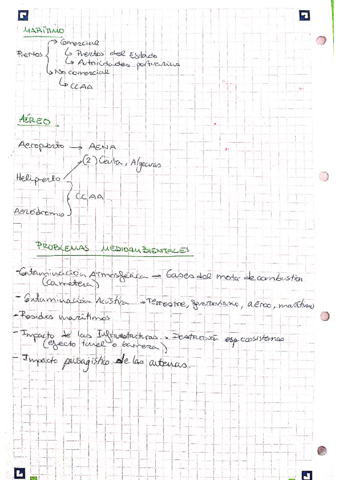 MARÍTIMO
Puertos
→ Comercial
↳ Puertos del Estado
↳ Autoridades portuarias
→ No comercial
↳ CCAA
AÉREO
Aeropuerto → AENA
(2) Ceuta, Algeciras
Helipuerto
CCAA
Aeródromo
PROBLEMAS MEDIOAMBIENTALES
- Contaminación Atmosférica → Gases del motor de combustión
(carretera)
- Contaminación Acústica → Terrestre, ferroviario, aéreo, marítimo
- Residuos marítimos
- Impacto de las Infraestructuras. ecosistemas
(efecto túnel o barrera)
- Impacto paisagístico de las antenas.